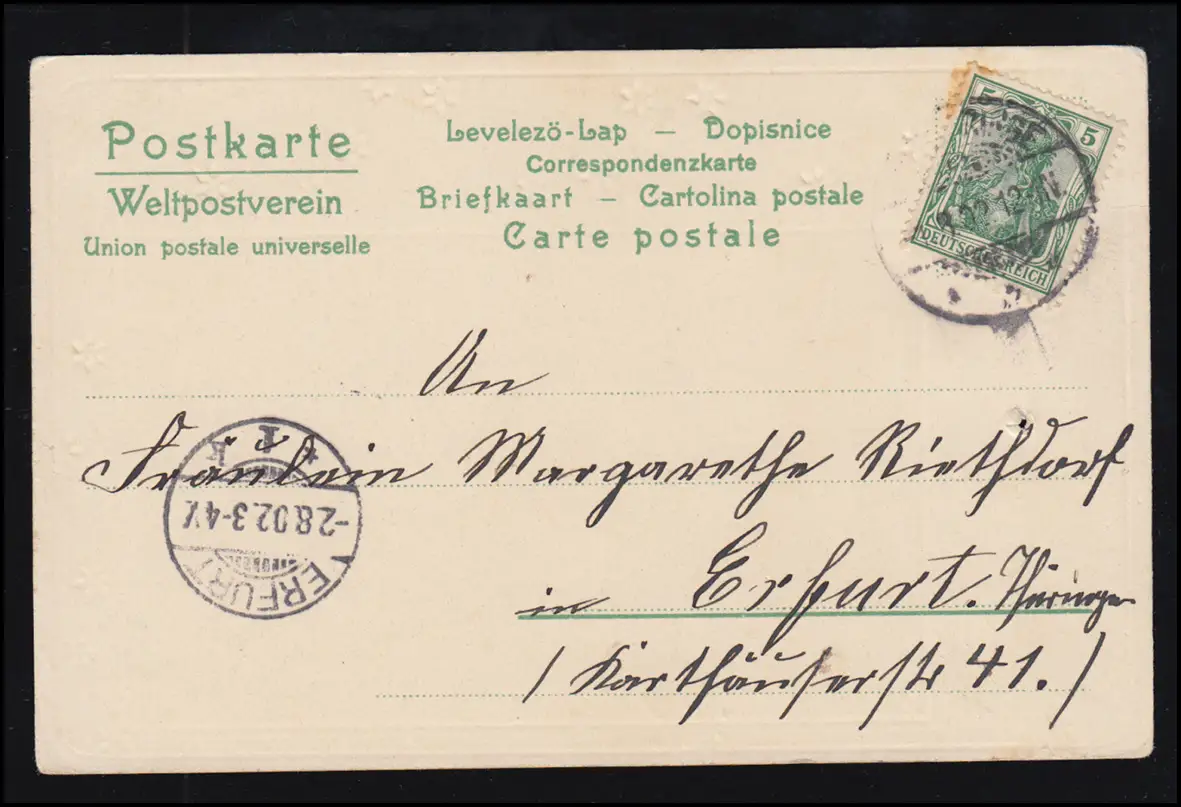 Postkarte
Weltpostverein
Union postale universelle
Levelezö-Lap — Dopisnice
Correspondenzkarte
Briefkaart — Cartolina postale
Carte postale
5 5
DEUTSCHES REICH
An
Fräulein Margarethe Riethdorf
in Erfurt. Thüringen
/ Karthäuserstr 41. /
* 1 k
-2.8.02.3-4 N.
ERFURT